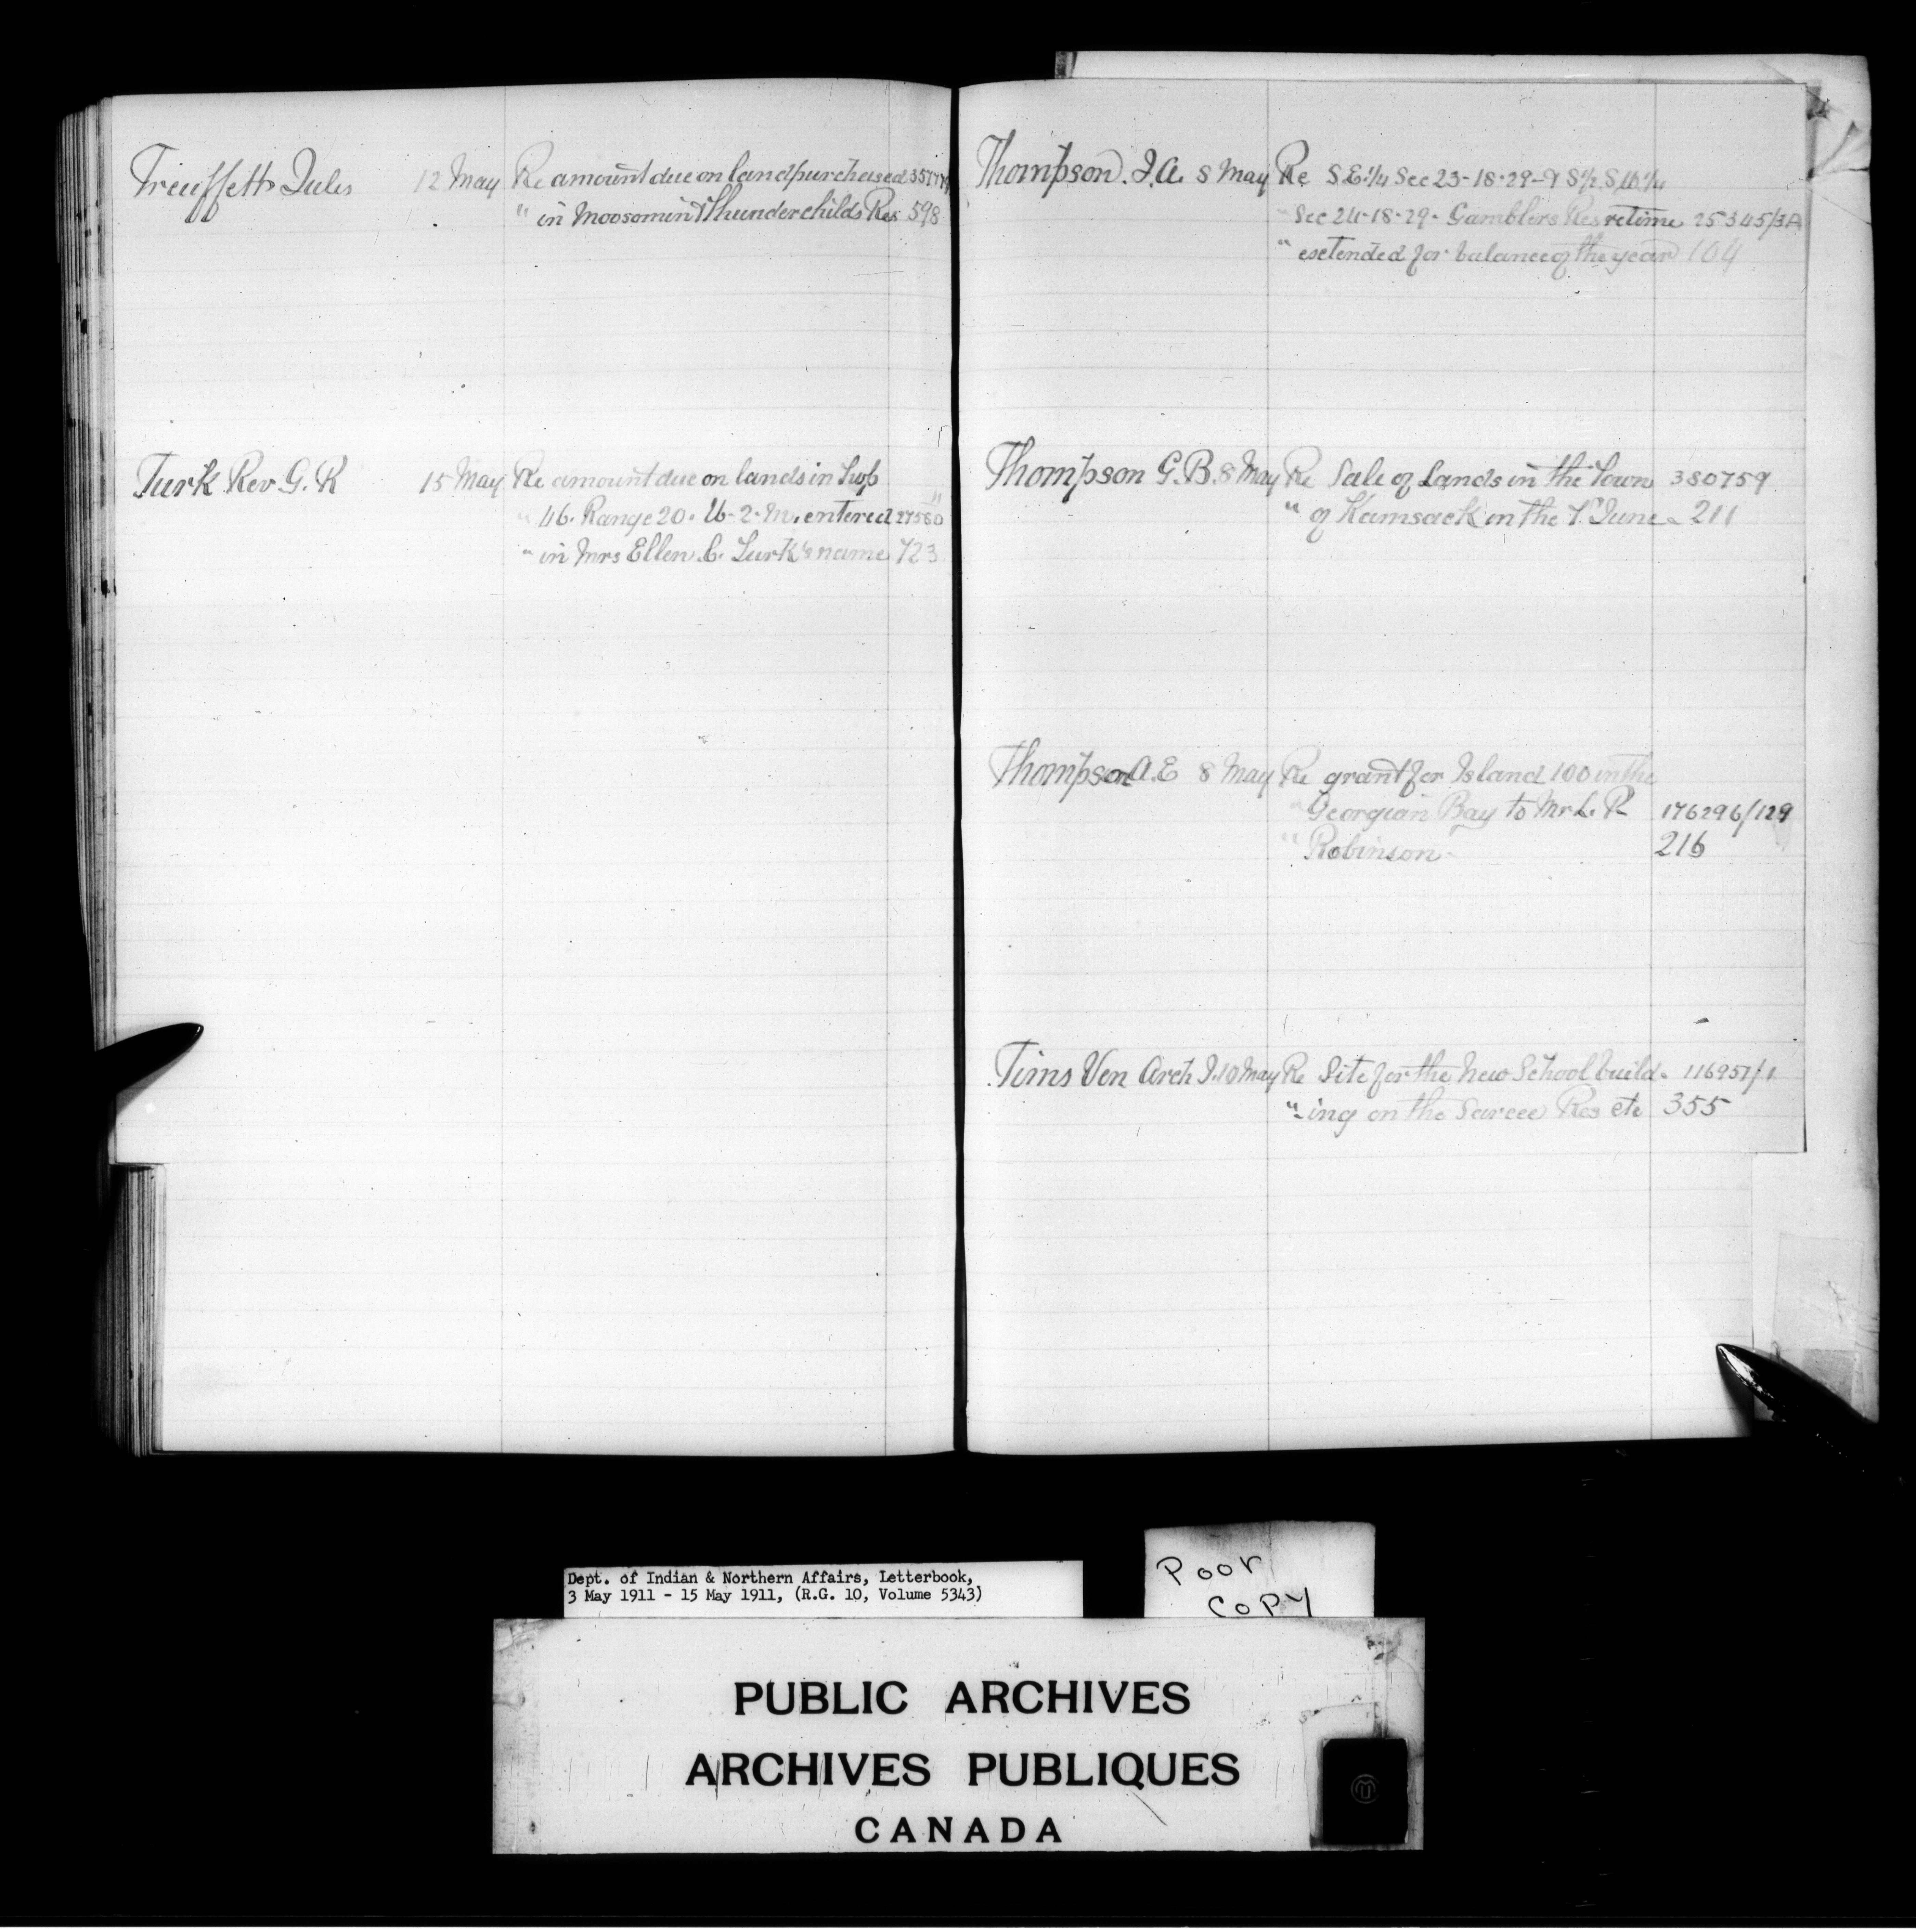 Treuffett Jules 12 May Re amount due on land purchased
" in Moosomin & Thunderchilds Res 598
Turk Rev G. R 15 May Re amount due on lands in Twp
" 46. Range 20. W. 2. M. entered 27580
" in Mrs Ellen C. Turk's name 723
Thompson. J. A. 8 May Re S.E. 1/4 Sec 23-18-29-& S 1/2 S.W. 1/4
" Sec 24-18-29- Gamblers Res re time 25345/3A
" esetended for balance of the year 104
Thompson G.B. 8 May Re Sale of Lands in the Town 380759
" of Kamsack on the 7th June. 211
Thompson A.E 8 May Re grant for Island 100 in the
" Georgian Bay to Mr L. R 176296/129
" Robinson 216
Tims Ven Arch J. 10 May Re Site for the New School build- 116957/1
" -ing on the Sarcee Res etc 355
Dept. of Indian & Northern Affairs, Letterbook,
3 May 1911 - 15 May 1911, (R.G. 10, Volume 5343)
Poor
Copy
PUBLIC ARCHIVES
ARCHIVES PUBLIQUES
CANADA